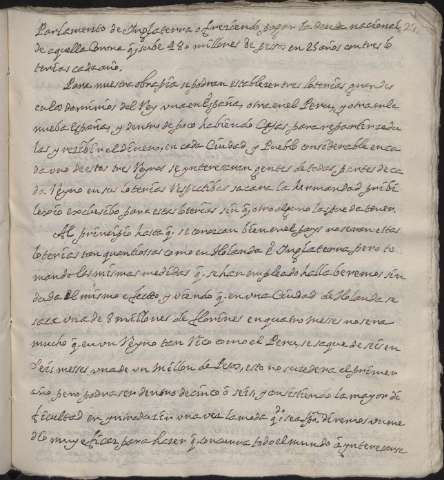 Parlamento de Ynglaterra ofreziendo pagar la deuda nacional
de aquella Corona q̃ sube a 80 millones de pesos en 25 años con tres lo
terias cada año.
Para nuestra obra pia se podran establecer tres loterias grandes
en los Dominios del Rey una en España, otra en el Peru, y otra en la
nueba España, y dentro de poco habiendo Cajas para repartir zedu
las y rezibir el dinero, en cada Ciudad y Pueblo considerable en ca
da uno de estos tres Reynos se ynteresaran gentes de todas partes de ca
da Reyno en sus loterias respectibas sacara la hermandad pribi
lexio exclusibo para estas loterias sin q̃ otro alguno las pueda tener.
Al principio hasta q̃ se conozcan bien en el pays no seran estas
loterias tan quantiosas como en Holanda è Ynglaterra pero to
mando las mismas medidas q̃ se han empleado halla beremos sin
duda el mismo efecto, y viendo q̃ en una Ciudad de Holanda se
saca una de 8 millones de florines en quatro meses no sera
mucho q̃ en un Reyno tan rico como el Peru, se saque de seis en
seis meses una de un millon de Pesos, esto no sucedera el primer
año, pero podra ser dentro de cinco ò seis, y consistiendo la mayor di
ficultad en una vez la moda q̃ diremos un me
dio muy eficaz para hazer q̃ concurra todo el mundo à ynteresarse